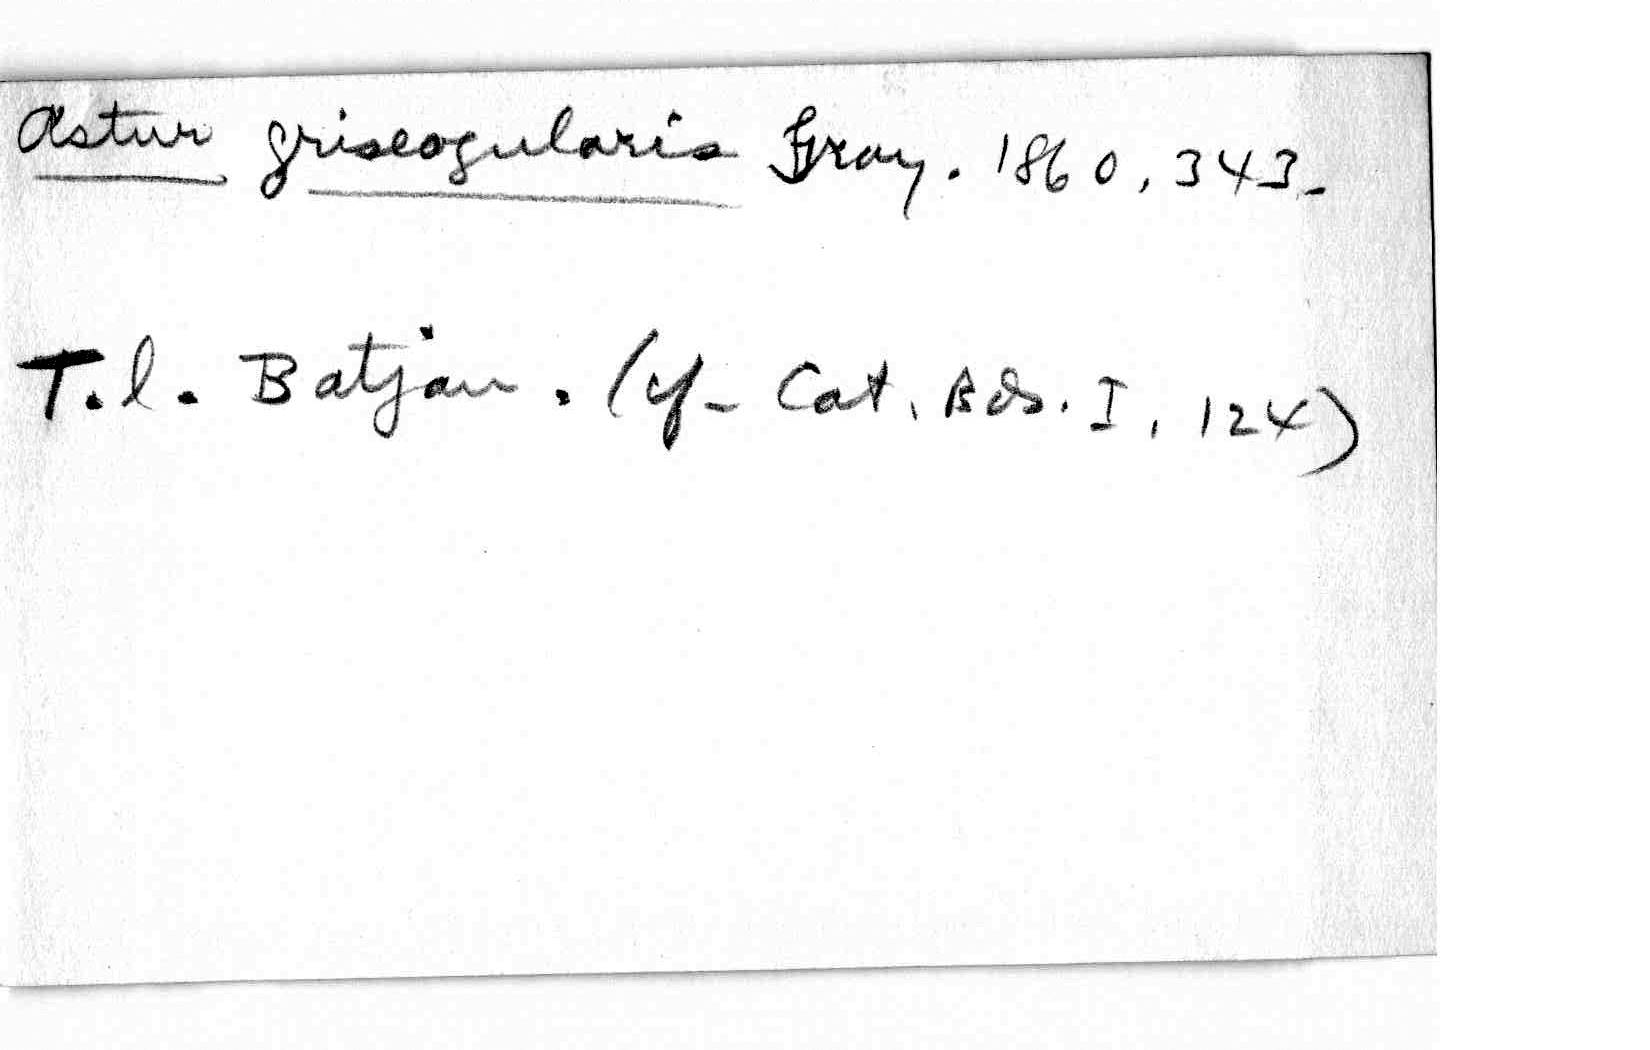 Astur griseogularis Gray. 1860, 343.
T.l. Batjan. (cf. Cat. Bds. I, 124)